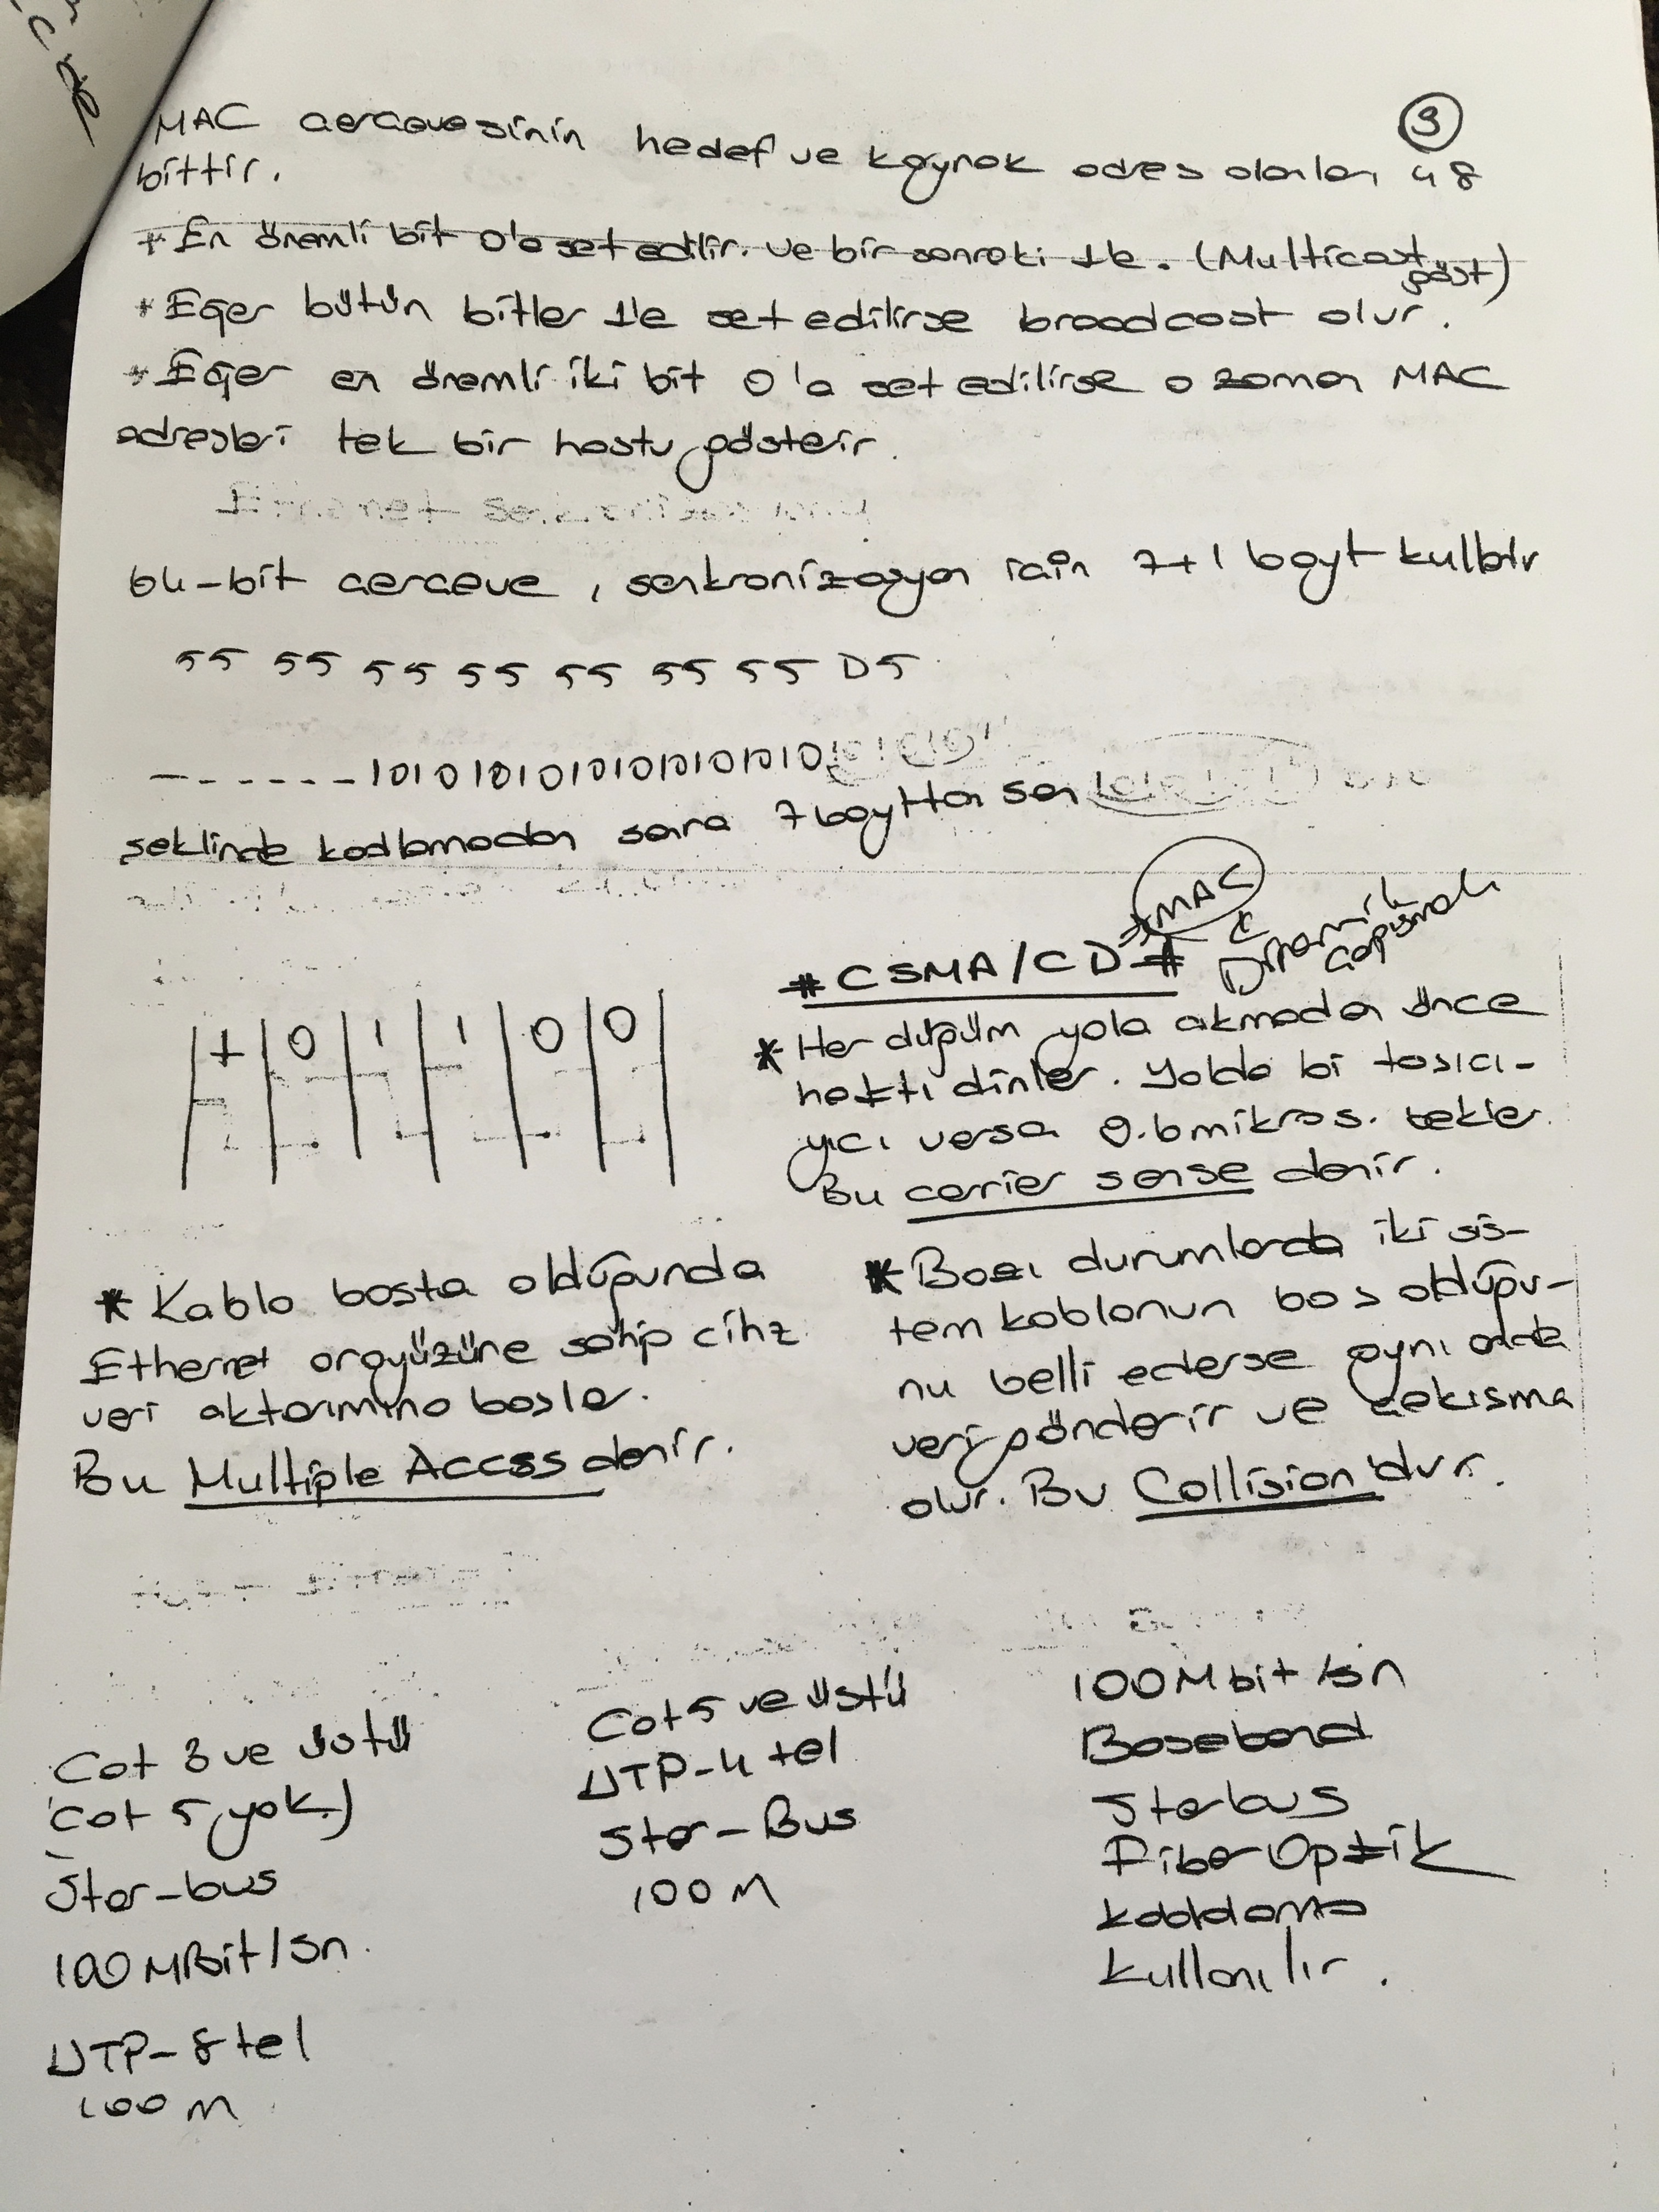 ③
MAC çerçevesinin hedef ve kaynak adres alanları 48
bittir.
* En önemli bit 0'a set edilir. ve bir sonraki 1'e. (Multicast
göst)
* Eğer bütün bitler 1'e set edilirse broadcast olur.
* Eğer en önemli iki bit 0'a set edilirse o zaman MAC
adresleri tek bir hostu gösterir.
64-bit çerçeve, senkronizasyon için 7+1 bayt kullnılır
55 55 55 55 55 55 55 D5
------1010101010101010101010
şeklinde kodlamadan sonra 7 bayttan son
MAC
Dinamik
çalışmalı
#CSMA/CD#
1 0 1 1 0 0
* Her düğüm yola çıkmadan önce
hattı dinler. Yolda bi taşıcı-
yıcı varsa 9.6 mikros. bekler.
Bu carrier sense denir.
* Kablo boşta olduğunda
Ethernet arayüzüne sahip cihz
veri aktarımına başlar.
Bu Multiple Access denir.
* Bazı durumlarda iki sis-
tem kablonun boş olduğu-
nu belli ederse aynı anda
veri gönderir ve çekısma
olur. Bu Collision'dur.
Cat 3 ve üstü
(Cat 5 yok.)
Star-bus
100 MBit/sn.
UTP-8 tel
100 M
Cat 5 ve üstü
UTP-4 tel
Star-Bus
100 M
100 Mbit/sn
Baseband
Starbus
Fiber Optik
kablolama
kullanılır.